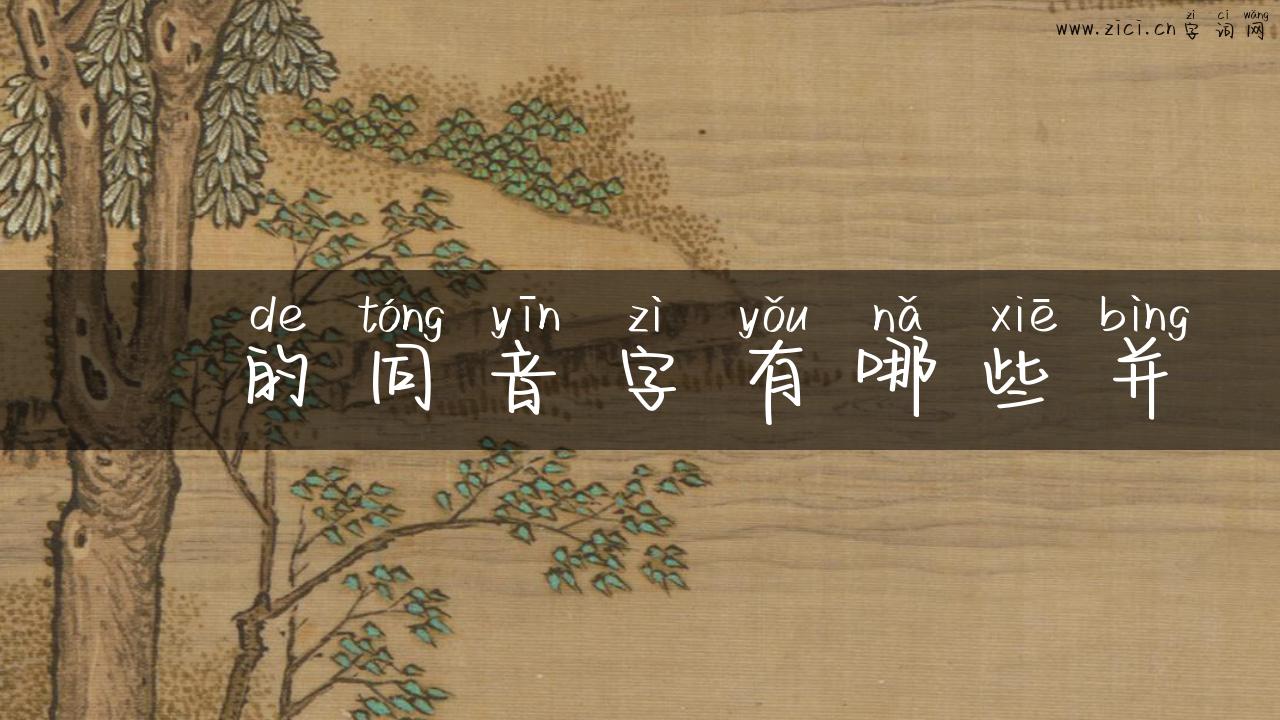 zì cí wǎng
www.zici.cn 字词网
de tóng yīn zì yǒu nǎ xiē bìng
的同音字有哪些并